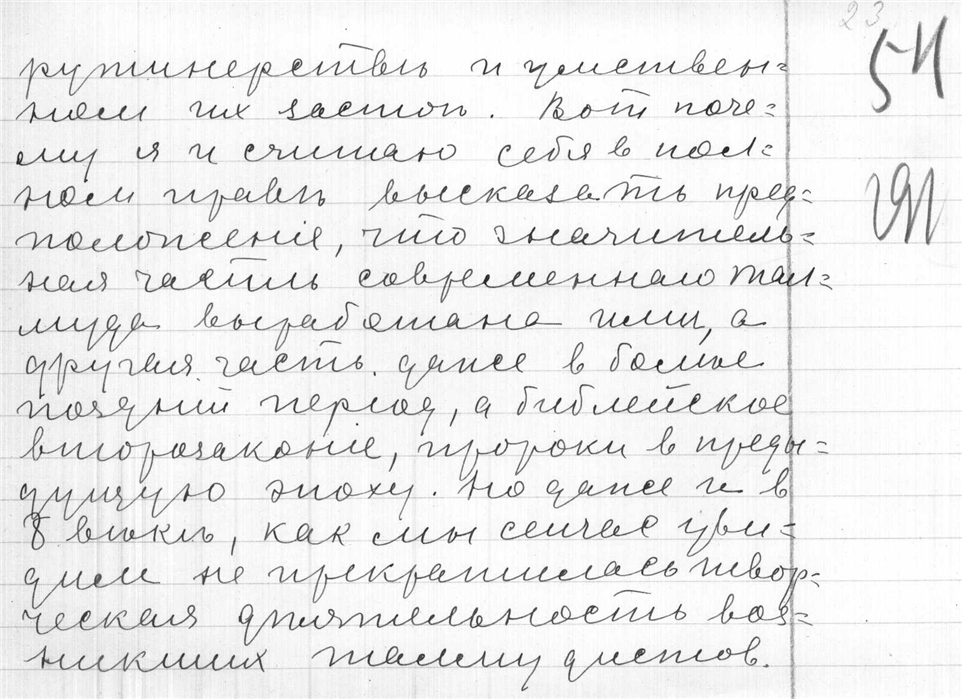 23
54
рутинерствѣ и умствен=
ном их застоѣ. Вот поче=
му я и считаю себя в пол=
ном правѣ высказать пред=
положеніе, что значитель=
ная часть современнаго Тал=
муда выработана ими, а
другая часть даже в болѣе
поздній период, а библейское
второзаконіе, пророки в преды=
дущую эпоху. Но даже и в
8 вѣкѣ, как мы сейчас уви=
дим не прекратилась твор=
ческая дѣятельность воз=
никших талмудистов.